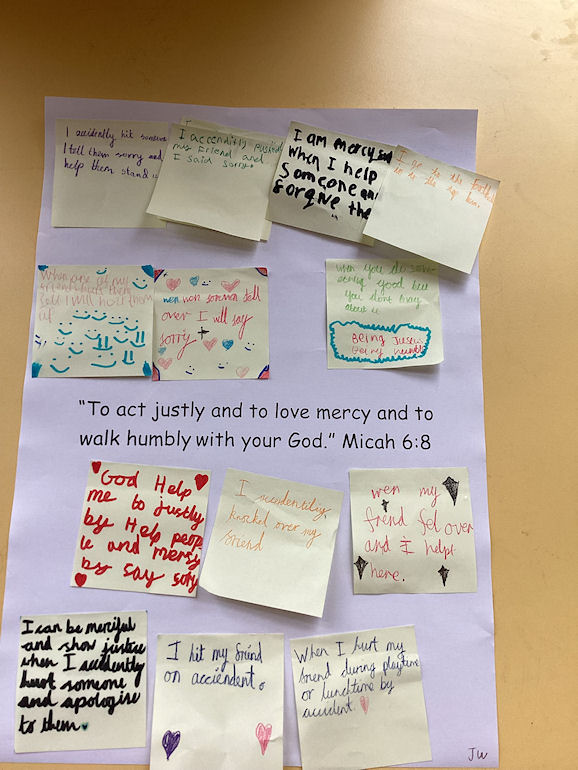 I accidently hit someone
I tell them sorry and
help them stand u
I accenditly pushed
my friend and
I said sorry.
I am mercy
when I help
Someone an
forgive the
I go to the
to the
When one of my
I will help them
wen som fell
over I will say
sorry
wen you do som
good but
you dont brag
about it
Being
Being
"To act justly and to love mercy and to
walk humbly with your God." Micah 6:8
God Help
me to justly
by Help peop
and mercy
by say sory
I accidentiliy
knocked over my
friend
wen my
frend fel over
and I help
here.
I can be merciful
and show justice
when I accidently
hurt someone
and apologise
to them.
I hit my friend
on acciendent.
When I hurt my
friend during playtime
or lunchtime by
accident.
JW